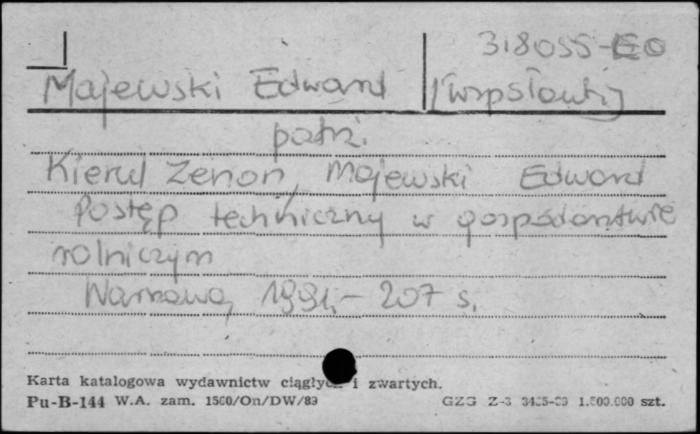 318055-
Majewski Edward [współaut.]
patrz.
Kierul Zenon, Majewski Edward
Postęp techniczny w gospodarstwie
rolniczym
Warszawa, 1991.- 207 s.
Karta katalogowa wydawnictw ciągłych i zwartych.
Pu-B-144 W.A. zam. 1560/On/DW/89 GZG Z-3 szt.